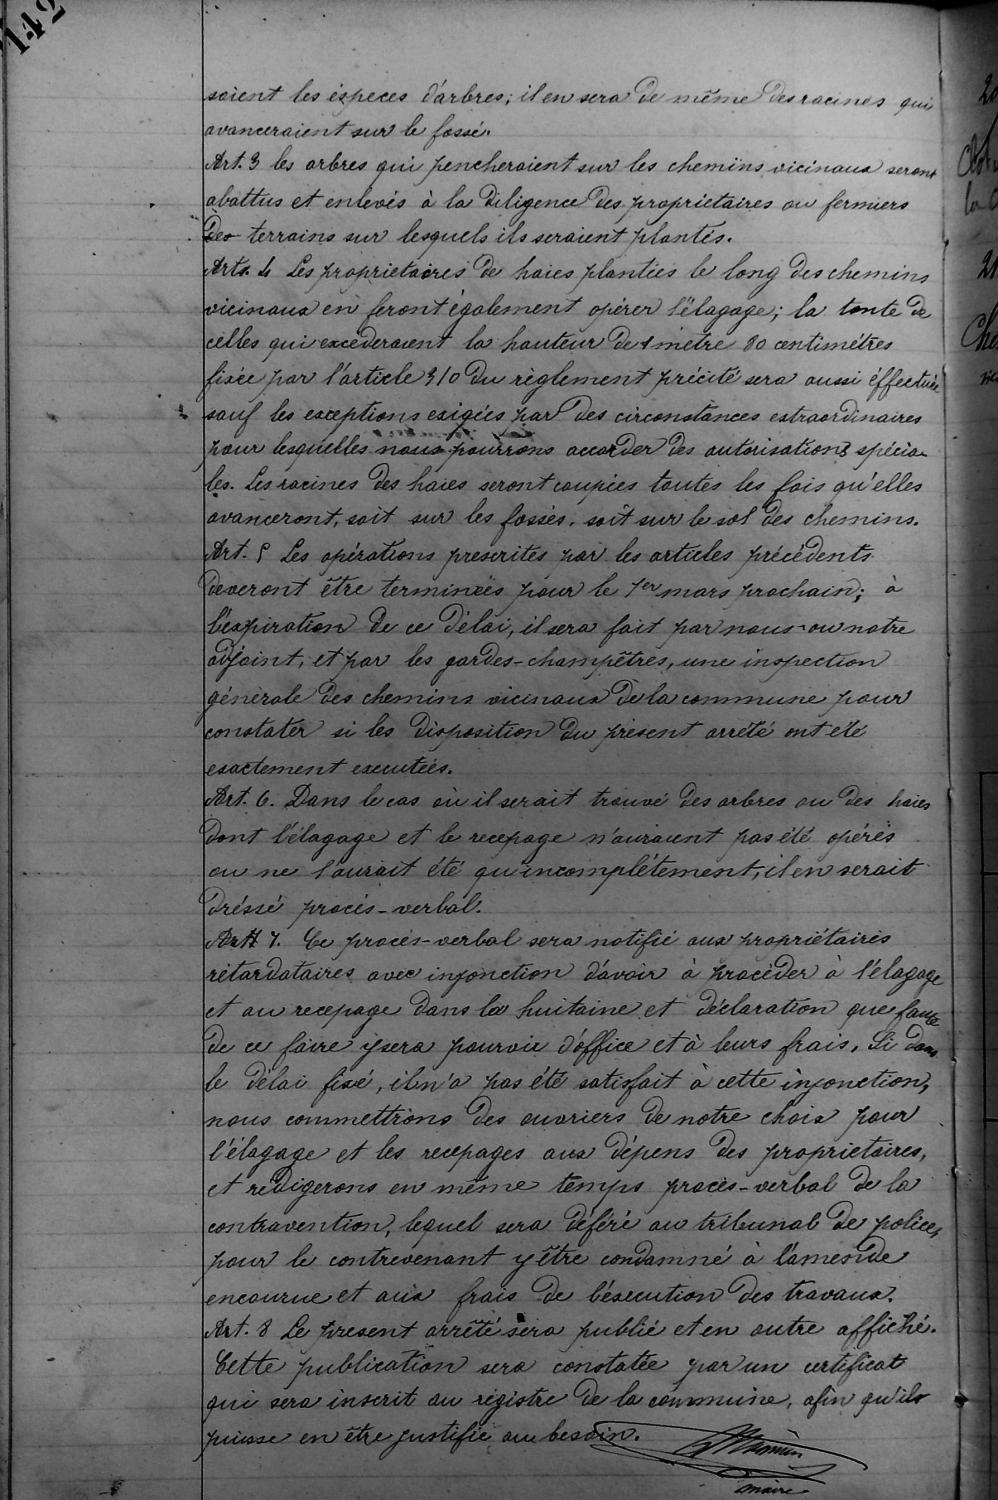 142
soient les éspeces d'arbres; il en sera de même des racines qui
avanceraient sur le fossé.
Art. 3 les arbres qui pencheraient sur les chemins vicinaux seront
abattus et enlevés à la diligence des propriétaires ou fermiers
des terrains sur lesquels ils seraient plantés.
Art. 4 Les propriétaires de haies plantées le long des chemins
vicinaux en feront également opérer l'élagage; la tonte de
celles qui excéderaient la hauteur de 1 mètre 80 centimètres
fixée par l'article 310 du règlement précité sera aussi éffectuée
sauf les exceptions exigées par des circonstances extraordinaires
pour lesquelles nous pourrons accorder des autorisations spécia-
les. Les racines des haies seront coupées toutes les fois qu'elles
avanceront, soit sur les fossés, soit sur le sol des chemins.
Art. 5 Les opérations prescrites par les articles précédents
deveront être terminées pour le 1er mars prochain; à
l'expiration de ce délai, il sera fait par nous ou notre
adjoint, et par les gardes-champêtres, une inspection
générale des chemins vicinaux de la commune pour
constater si les disposition du présent arrêté ont été
exactement executées.
Art. 6. Dans le cas où il serait trouvé des arbres ou des haies
dont l'élagage et le recepage n'auraient pas été opérés
ou ne l'aurait été qu'incomplétement, il en serait
dréssé procès-verbal.
Art 7. Ce procès-verbal sera notifié aux propriétaires
retardataires avec injonction d'avoir à procéder à l'élagage
et au recepage dans la huitaine et déclaration que faute
de ce faire y sera pourvu d'office et à leurs frais. Si dans
le délai fixé, il n'a pas été satisfait à cette injonction,
nous commettrons des ouvriers de notre choix pour
l'élagage et les recepages aux dépens des propriétaires,
et redigerons en même temps procès-verbal de la
contravention, lequel sera déféré au tribunal de police,
pour le contrevenant y être condamné à l'amende
encourue et aux frais de l'éxecution des travaux.
Art. 8 Le present arrêté sera publié et en outre affiché.
Cette publication sera constatée par un certificat
qui sera inscrit au régistre de la commune, afin qu'ils
puisse en être justifié au besoin.
maire